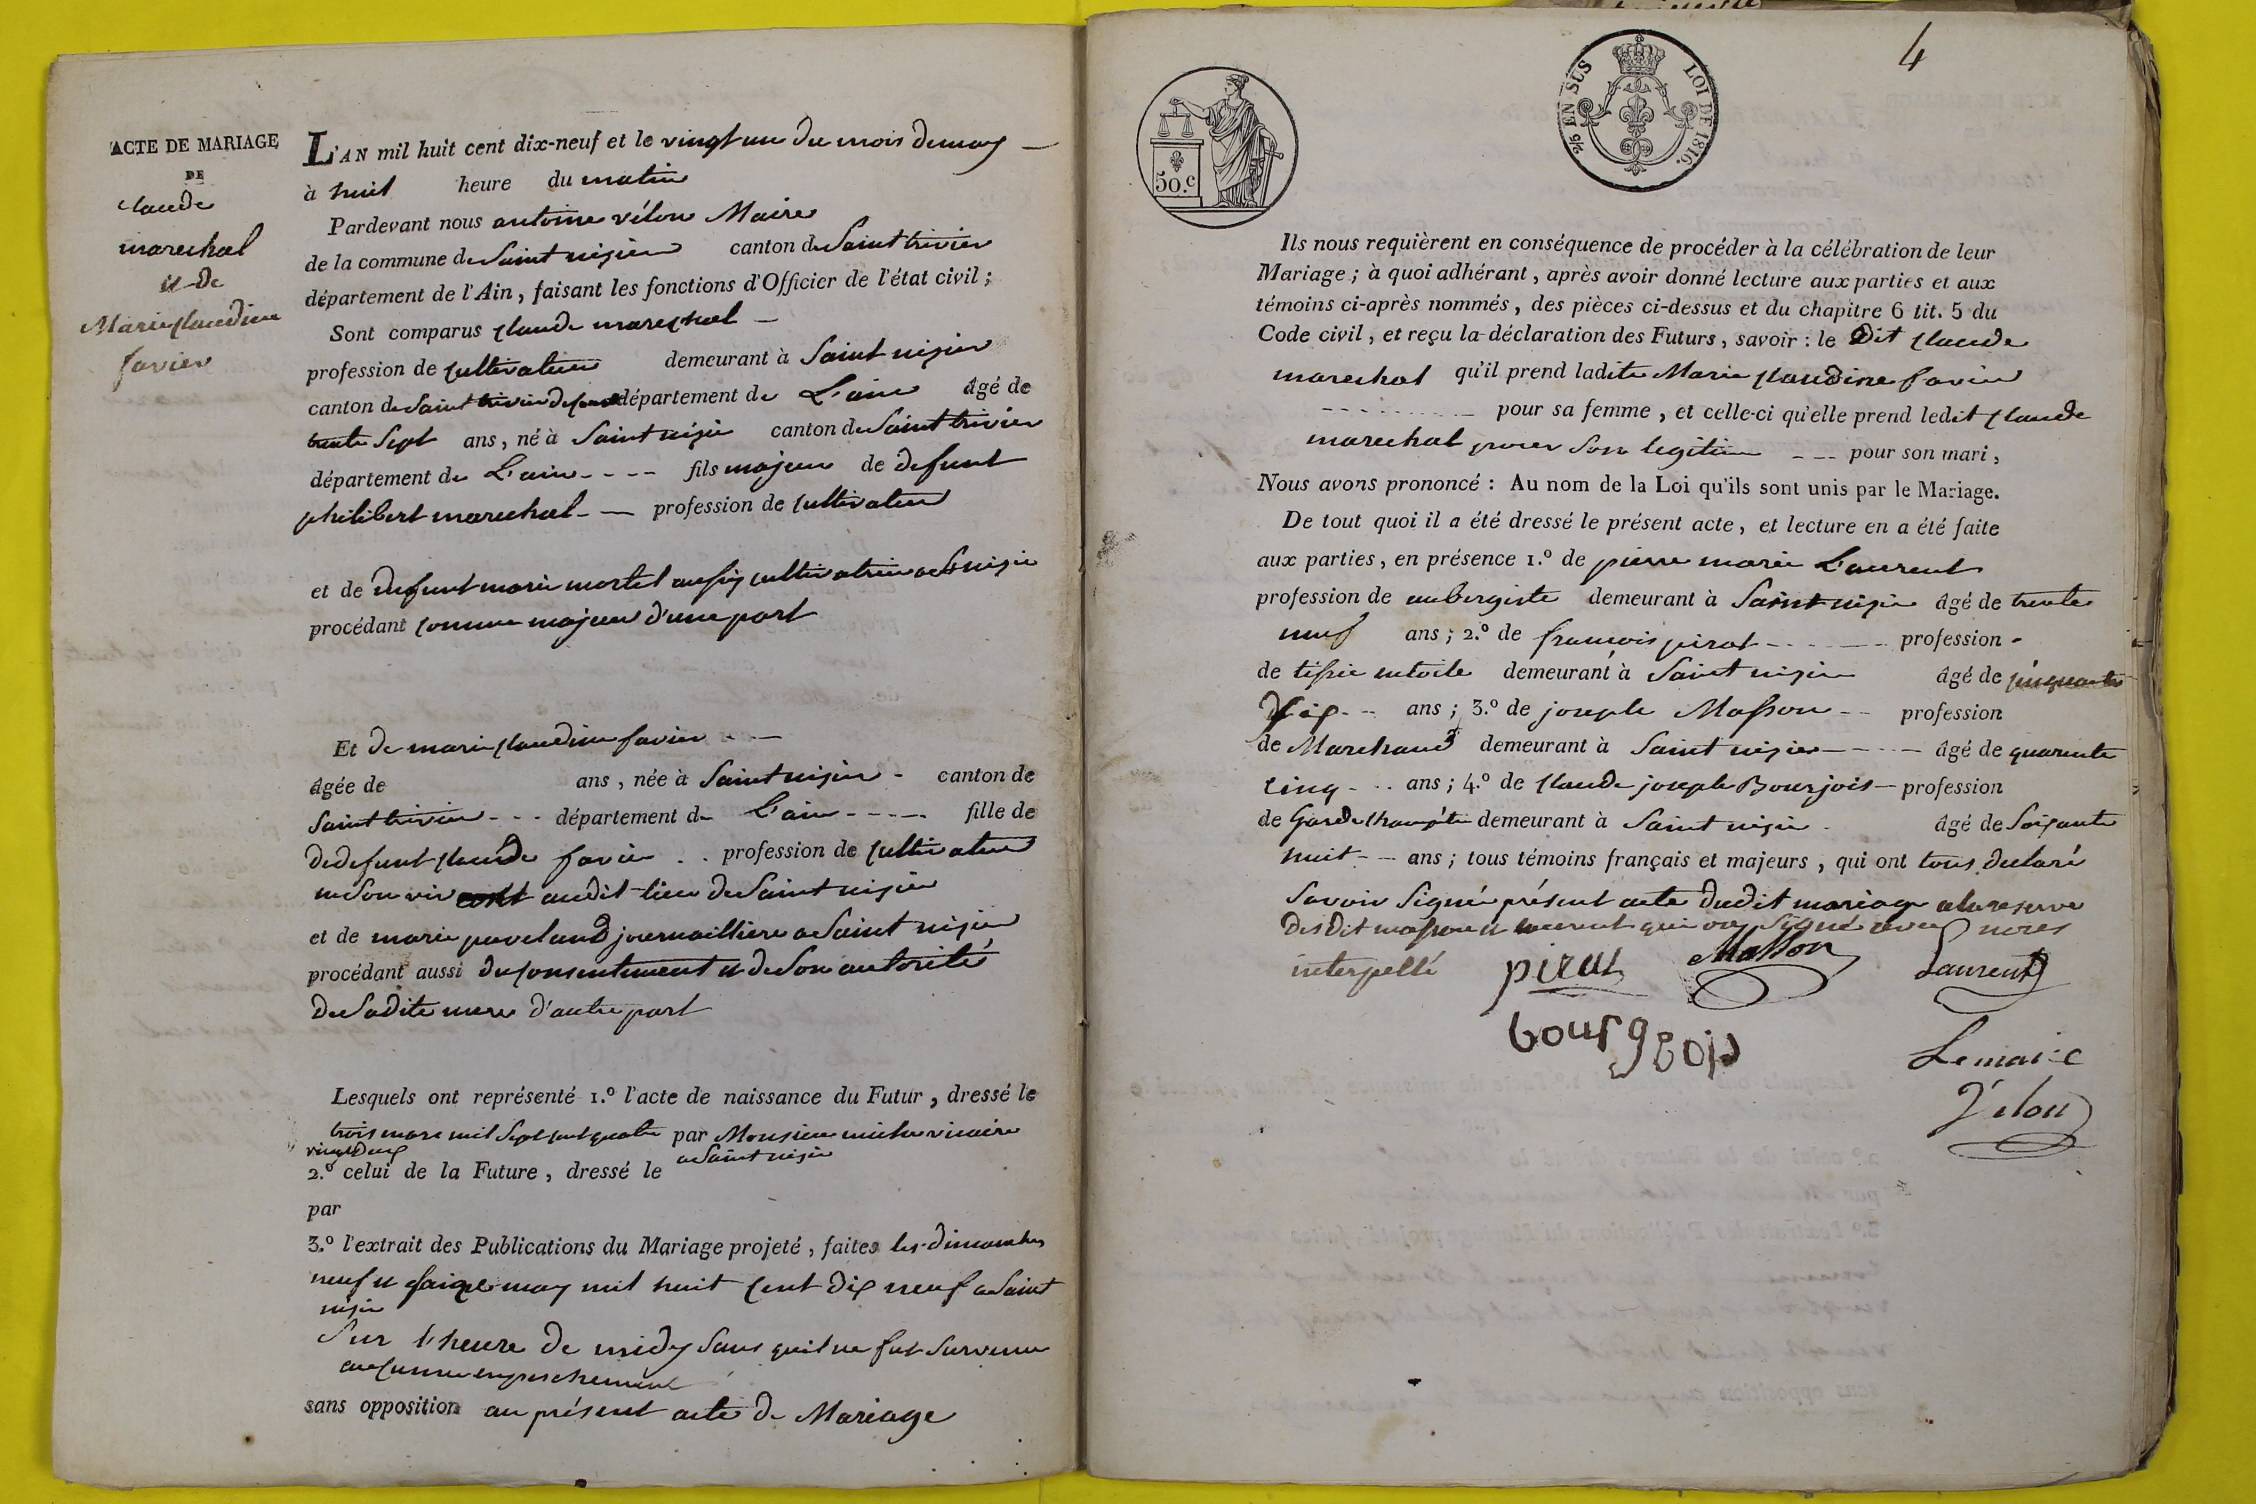 ACTE DE MARIAGE
DE
claude
marechal
et de
Marie claudine
favier
L'AN mil huit cent dix-neuf et le vingt un du mois de may
à huit heure du matin
Pardevant nous antoine vélon Maire
de la commune de Saint nizier canton de Saint trivier
département de l'Ain, faisant les fonctions d'Officier de l'état civil ;
Sont comparus claude marechal
profession de cultivateur demeurant à Saint nizier
canton de Saint trivier de département de L'ain âgé de
trente Sept ans, né à Saint nizier canton de Saint trivier
département de L'ain fils majeur de defunt
philibert marechal profession de cultivateur
et de defunt marie mortel aussy cultivatrice a St nizier
procédant comme majeur d'une part
Et de marie claudine favier
âgée de ans, née à Saint nizier canton de
Saint trivier département de L'ain fille de
de defunt claude favier profession de cultivateur
en Son vivant audit lieu de Saint nizier
et de marie paveland journailliere a Saint nizier
procédant aussi du consentement et de Son autorité
de Sadite mere d'autre part
Lesquels ont représenté 1.º l'acte de naissance du Futur, dressé le
trois mars mil Sept cent quatre par Monsieur vicaire
vingt deux a Saint nizier
2.º celui de la Future, dressé le
par
3.º l'extrait des Publications du Mariage projeté, faites les dimanches
neuf et Saize may mil huit cent dix neuf a Saint
nizier
Sur l'heure de midy Sans quil ne fut Survenu
aucunne enpechement
sans opposition au présent acte de Mariage
4
50.c
2/5 EN SUS LOI DE 1816.
Ils nous requièrent en conséquence de procéder à la célébration de leur
Mariage ; à quoi adhérant, après avoir donné lecture aux parties et aux
témoins ci-après nommés, des pièces ci-dessus et du chapitre 6 tit. 5 du
Code civil, et reçu la déclaration des Futurs, savoir : le Dit claude
marechal qu'il prend ladite Marie claudine favier
pour sa femme, et celle-ci qu'elle prend ledit claude
marechal pour Son legitime pour son mari,
Nous avons prononcé : Au nom de la Loi qu'ils sont unis par le Mariage.
De tout quoi il a été dressé le présent acte, et lecture en a été faite
aux parties, en présence 1.º de pierre marie Laurent
profession de aubergiste demeurant à Saint nizier âgé de trente
neuf ans ; 2.º de francois pirat profession
de tissie entoile demeurant à Saint nizier âgé de cinquante
Six ans ; 3.º de joseph Masson profession
de Marchand demeurant à Saint nizier âgé de quarente
cinq ans ; 4.º de claude joseph Bourjois profession
de Garde champêtre demeurant à Saint nizier âgé de Soixante
huit ans ; tous témoins français et majeurs, qui ont tous declaré
Savoir Signé présent acte dudit mariage a la reserve
Des dit masson et laurent qui on Signé avec nous
interpellé pirat Masson Laurent
bourgeois
Le maire
Vélon